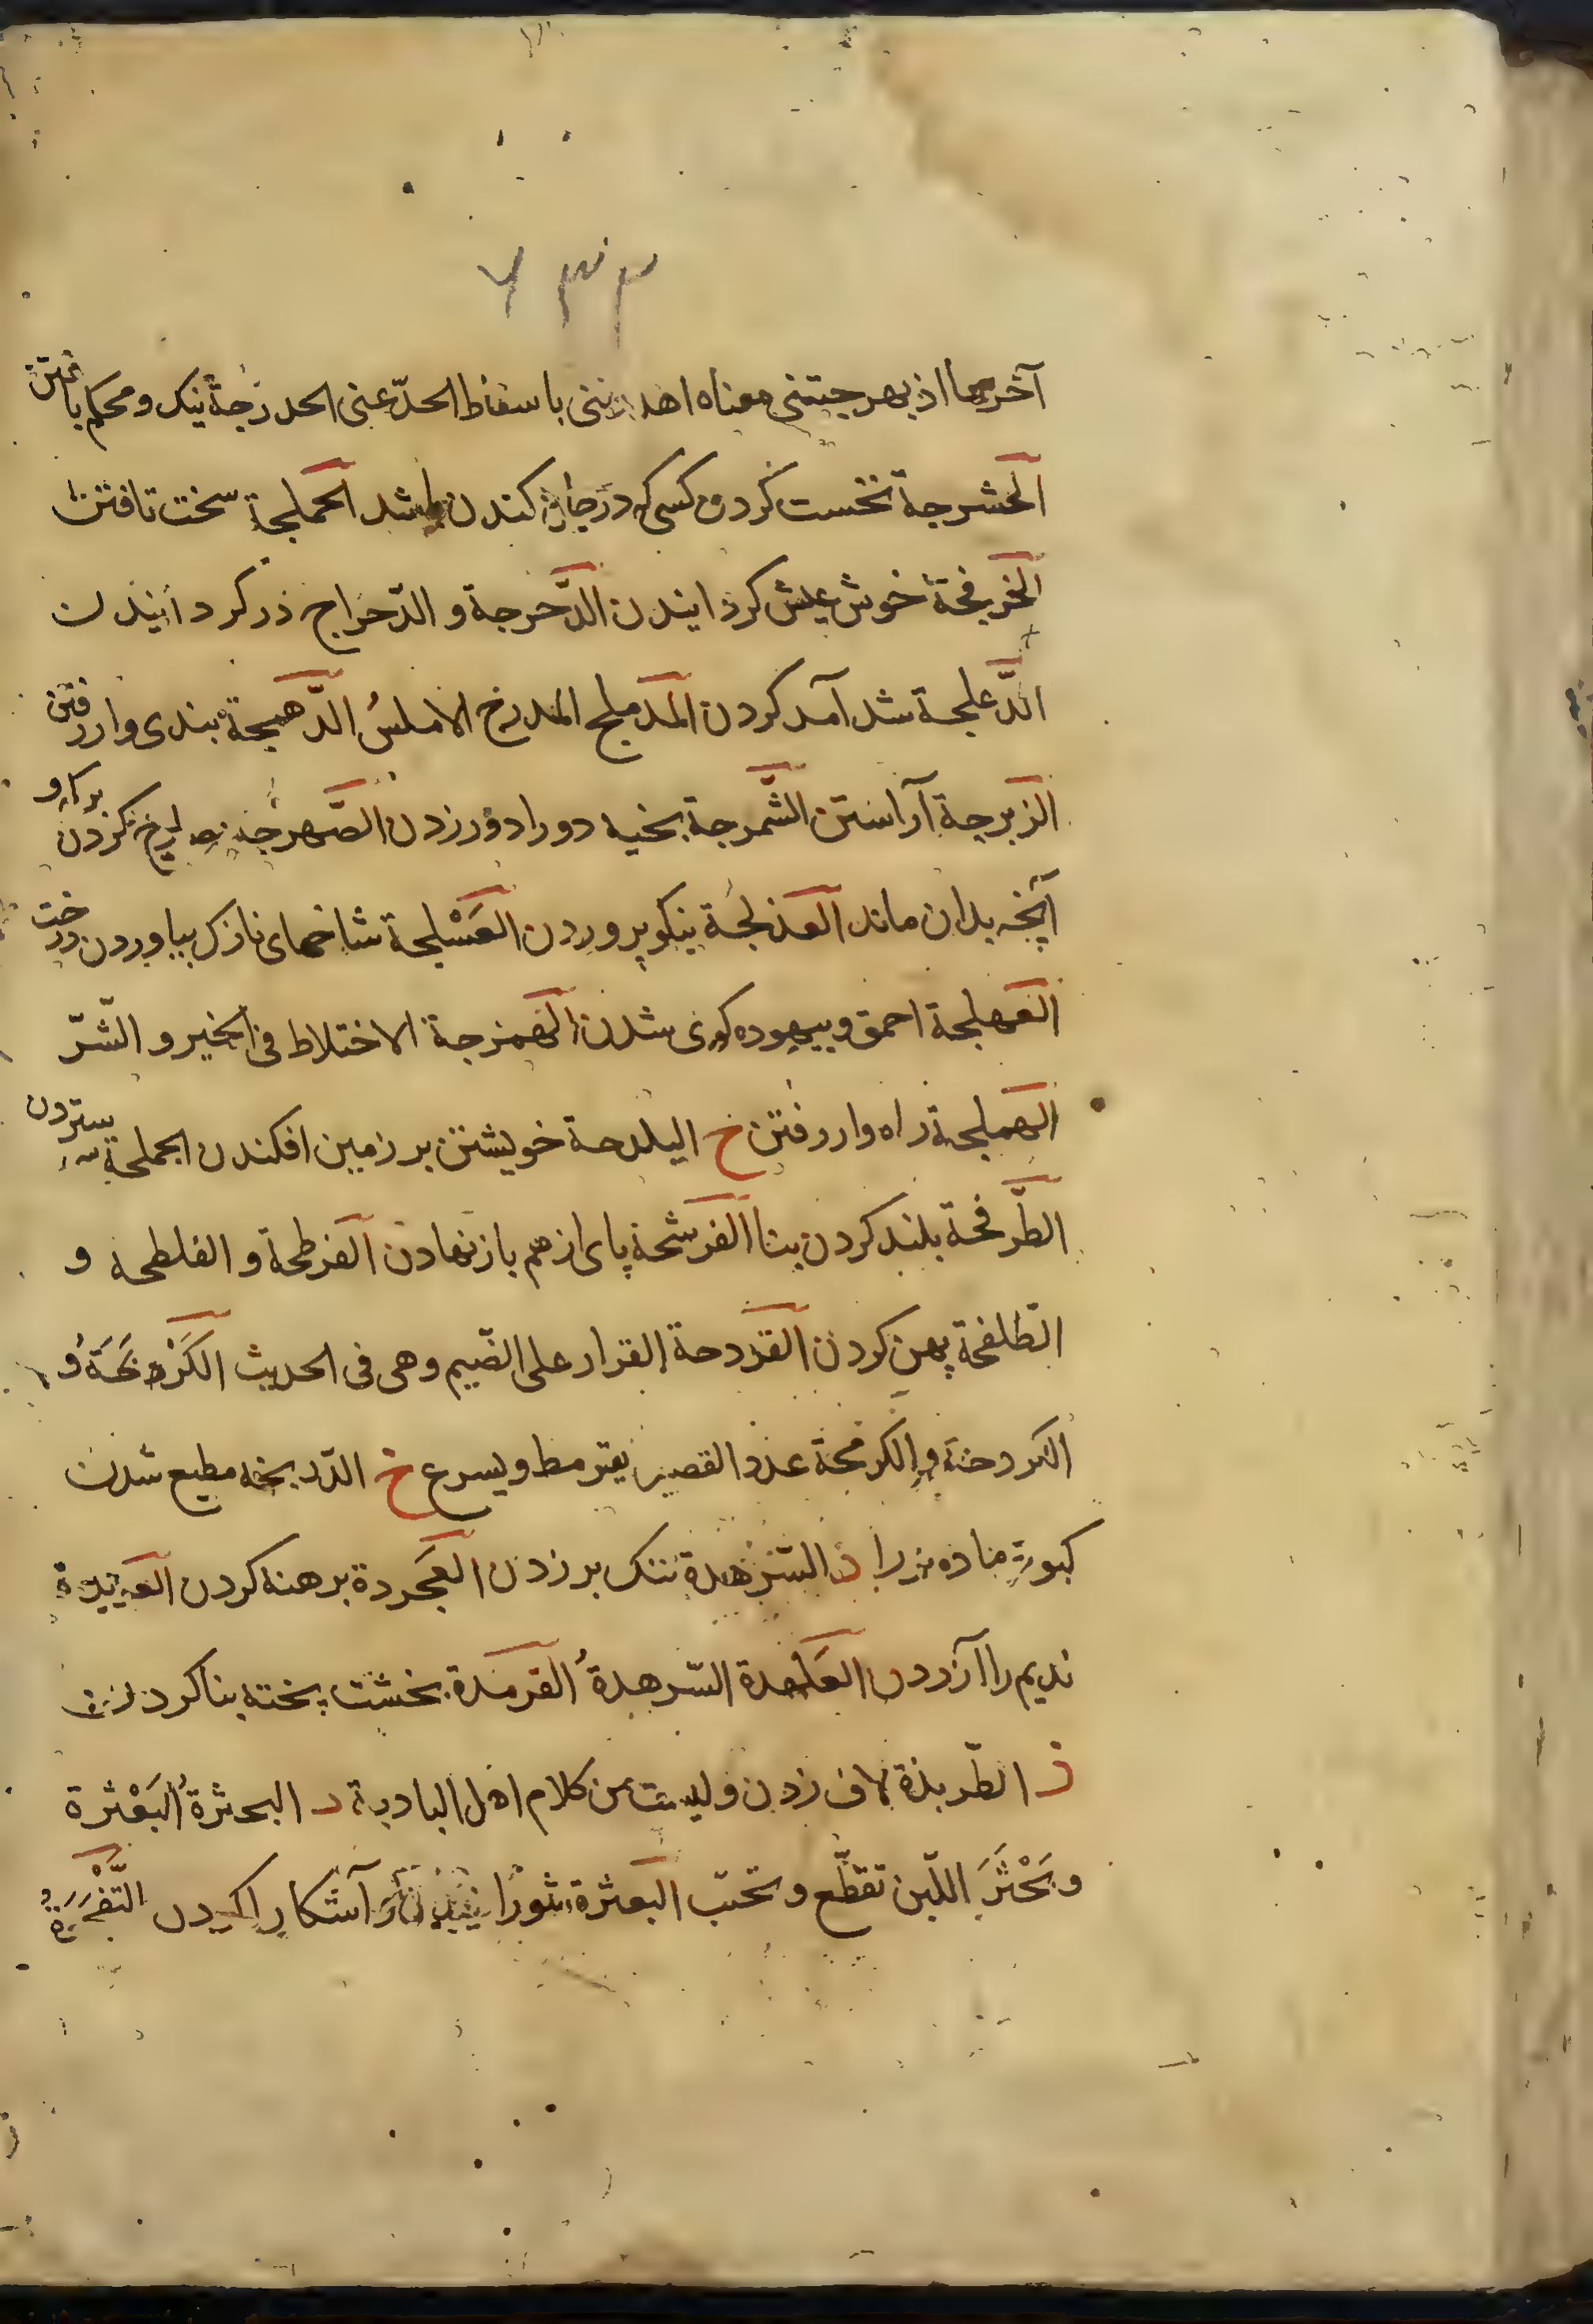 ۲۳۶
آخرها اذ بهرجتنی معناه اهدرتنی باسقاط الحدّ عنی الحدرجة نیک و محکم بافتن
الحشرجة نخست کردن کسی که در جان کندن باشد الحملجة سخت تافتن
الخرفجة خوش عیش کردانیدن الدَّحرجة و الدّحراج در کردانیدن
الدَّعلجة شد آمد کردن المدملج المدرج الاملسُ الدَّهمجة بندی وار رفتن
الزبرجة آراستن الشَّمرجة بخیه دورادور زدن الصَّهرجة کردن برکه و
آنچه بدان ماند العذلجة نیکو پروردن العَسْلجة شاخهای نازک بیاوردن درخت
العهلجة احمق و بیهوده کوی شدن الهمرجة الاختلاط فی الخیر و الشّرّ
الهملجة راه وار رفتن ح البلدحة خویشتن بر زمین افکندن الجملحة ستردن سر
الطَّرفحة بلند کردن بنا الفرشحة پای از هم باز نهادن الفرطحة و الفلطحه و
الطلفحة پهن کردن القردحة القرار علی الضّیم و هی فی الحدیث الکَرْمَحَةُ و
الکردحة و الکرمحة عدو القصیر یقرمط و یسرع خ الدّربخه مطیع شدن
کبوتر ماده نر را د السّرهدة تنک بر زدن العَجردة برهنه کردن العربدة
ندیم را آزردن العلهدة السّرهدةُ القرمدة بخشت پخته بنا کردن
ذ الطّربذة لاف زدن و لیست من کلام اهل البادیة ر البحثرةُ البَعْثرة
و بَحْثَرَ اللّبن تقطّع و تحبّب البعثرة شورانیدن و آشکارا کردن التَّفجرةُ